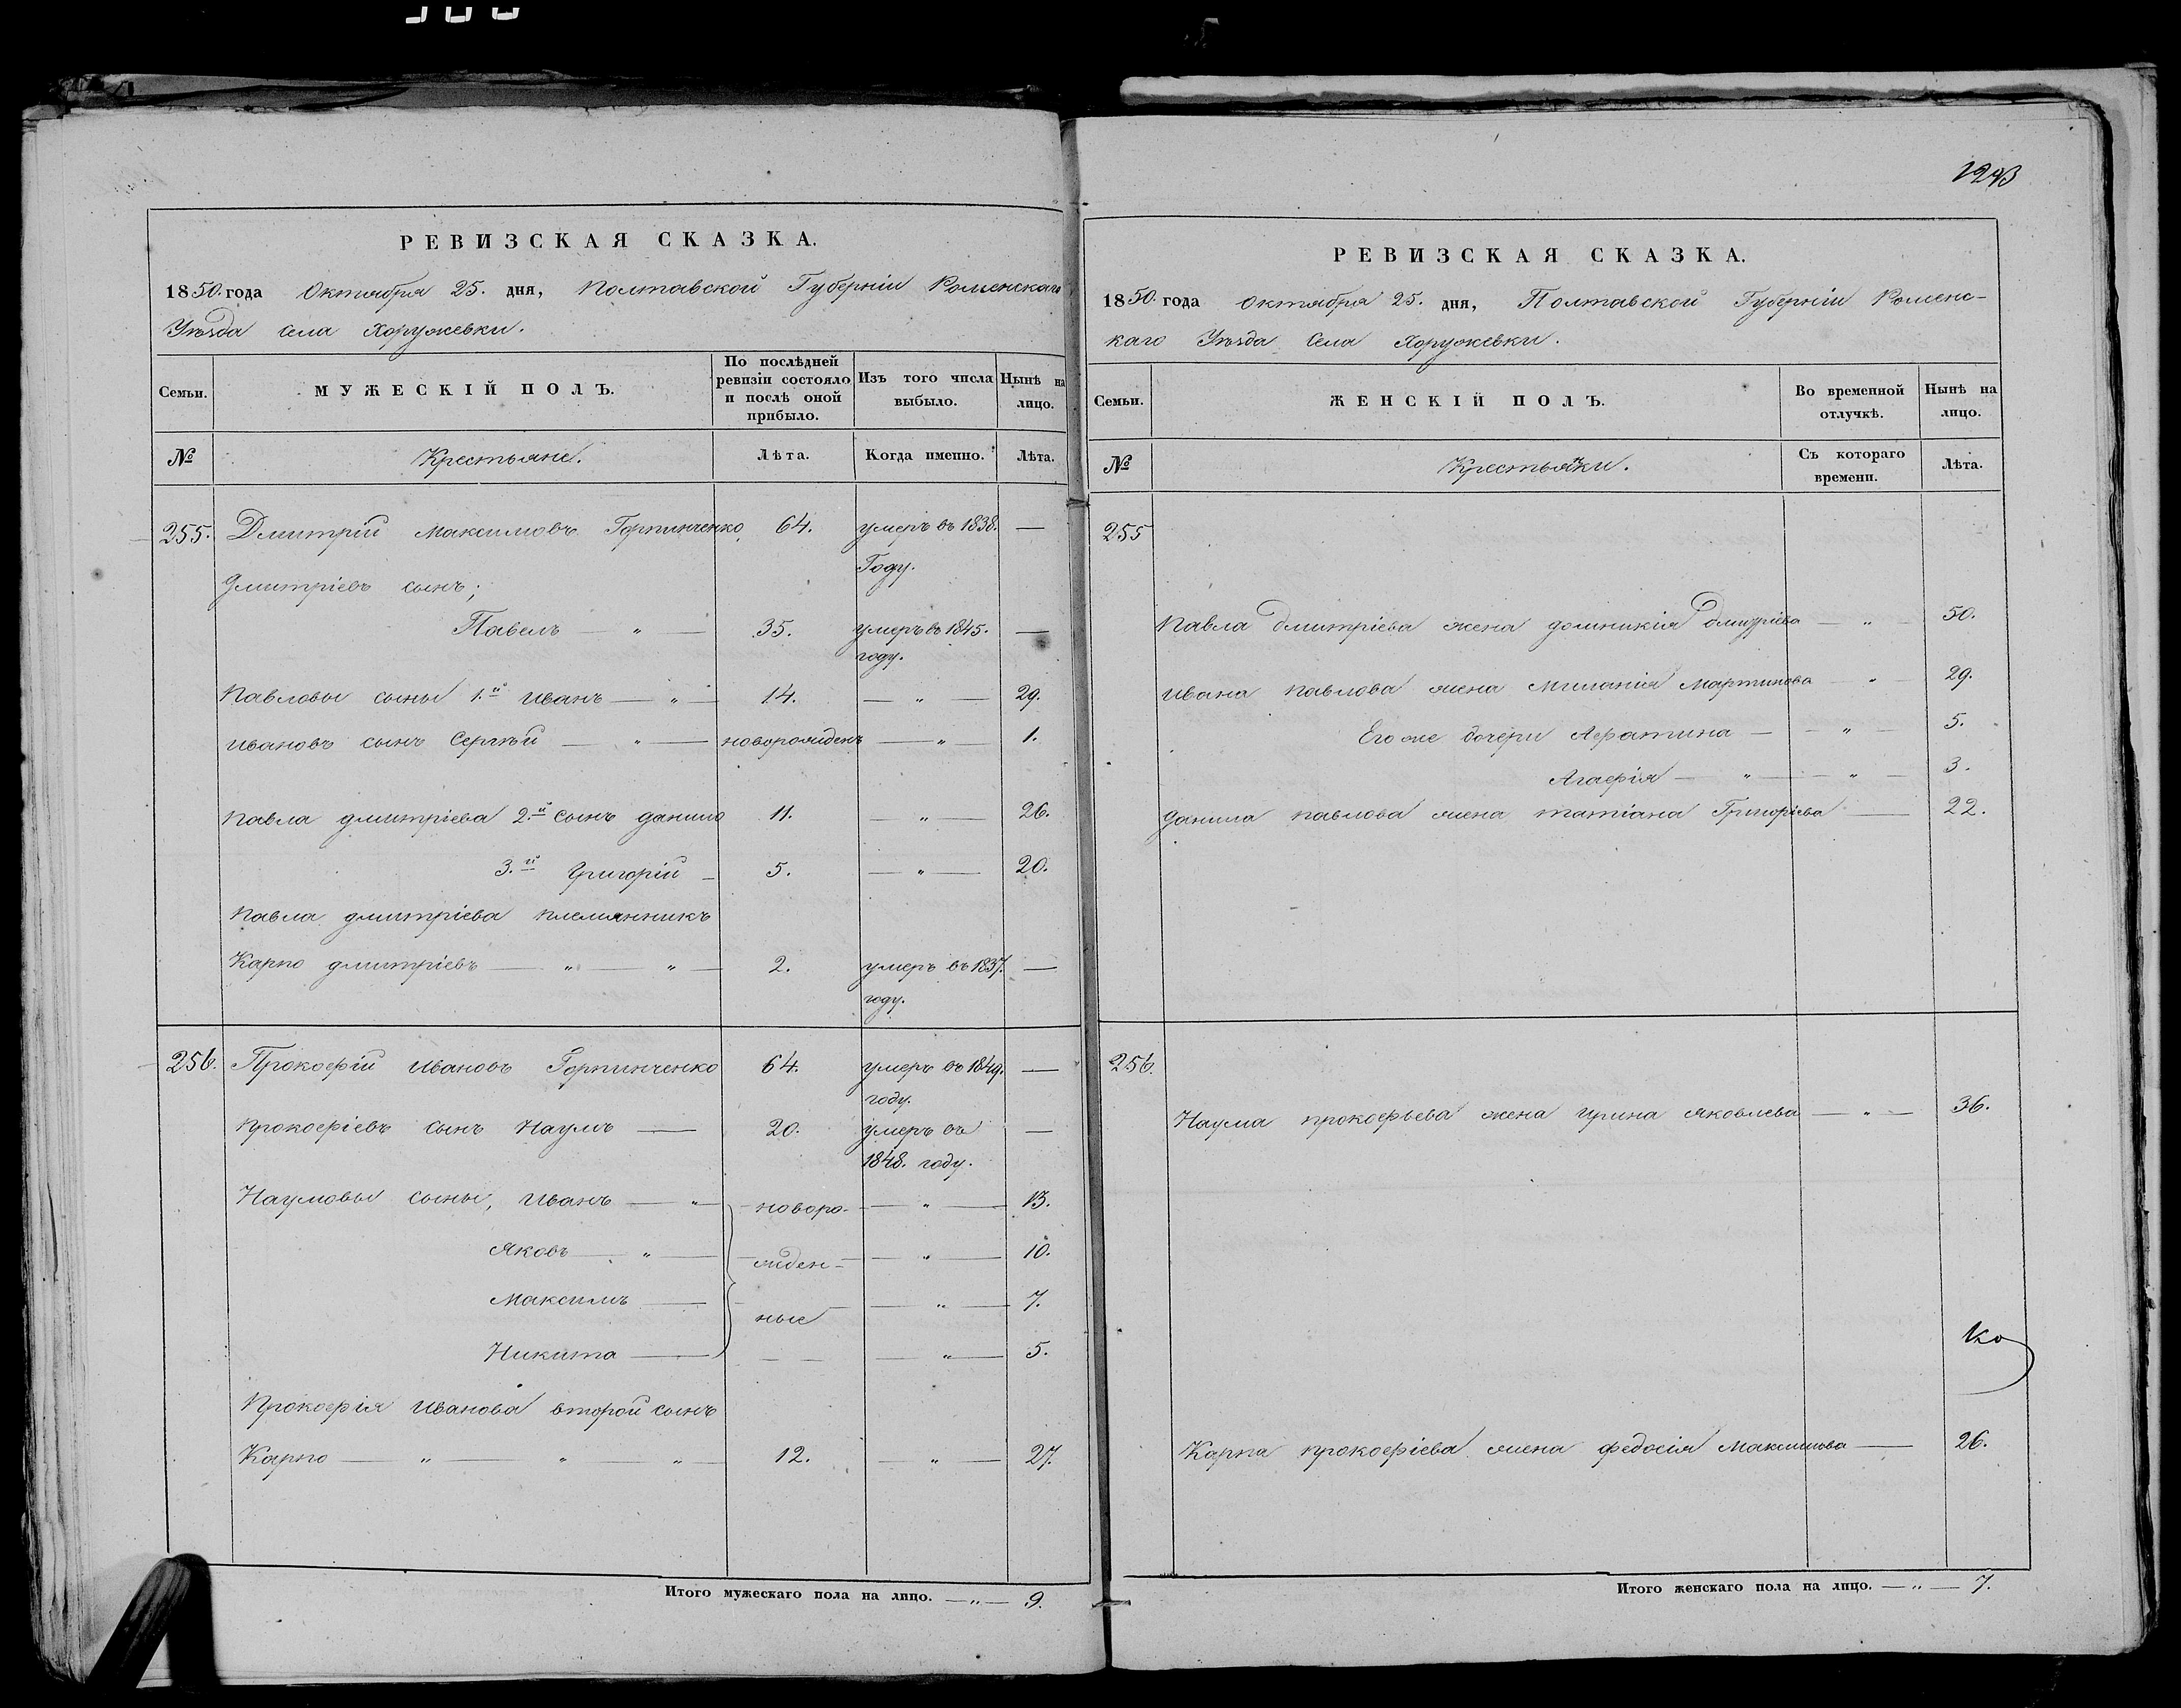 РЕВИЗСКАЯ СКАЗКА.
1850. года Октября 25. дня, Полтавской Губерніи Роменскаго
Уѣзда Села Хоружевки.
Семьи.
МУЖЕСКІЙ ПОЛЪ.
По послѣдней ревизіи состояло и послѣ оной прибыло.
Изъ того числа выбыло.
Нынѣ на лицо.
№ Крестьяне. Лѣта. Когда именно. Лѣта.
255. Дмитрій Максимовъ Горпинченко 64. умеръ въ 1838. —
Году.
Дмитріевъ сынъ;
Павелъ — „ — 35. умеръ въ 1845. —
году.
Павловы сыны 1.й Иванъ — „ — 14. — „ — 29.
Ивановъ сынъ Сергѣй — „ — новорожденъ — „ — 1.
Павла дмитріева 2.й сынъ данило 11. — „ — 26.
3.й Григорій — 5. — „ — 20.
Павла дмитріева племянникъ
Карпо дмитріевъ — „ — „ — 2. умеръ въ 1837. —
году.
256. Прокофій Ивановъ Горпинченко 64. умеръ въ 1849. —
году.
Прокофіевъ сынъ Наумъ — 20. умеръ въ —
1848. году.
Наумовы сыны, Иванъ — „ — новоро- — „ — 13.
Яковъ — „ — жден- — „ — 10.
Максимъ — ные — „ — 7.
Никита — — — — „ — 5.
Прокофія Иванова второй сынъ
Карпо — „ — „ — „ — 12. — „ — 27.
Итого мужескаго пола на лицо. — „ — 9.
1293
РЕВИЗСКАЯ СКАЗКА.
1850. года Октября 25. дня, Полтавской Губерніи Роменс-
каго Уѣзда Села Хоружевки.
Семьи.
ЖЕНСКІЙ ПОЛЪ.
Во временной отлучкѣ.
Нынѣ на лицо.
№ Крестьянки. Съ котораго времени. Лѣта.
255
Павла дмитріева жена домникія дмитріева — „ — 50.
Ивана павлова жена Миланія Мартинова — „ — 29.
Его же дочери Афатина — — „ — 5.
Агафія — „ — — „ — 3.
Данила павлова жена татіана Григоріева — 22.
256.
Наума прокофьева жена ирина яковлева — „ — 36.
Ко
Карпа прокофіева жена федосія Максимова — 26.
Итого женскаго пола на лицо. — „ — 7.